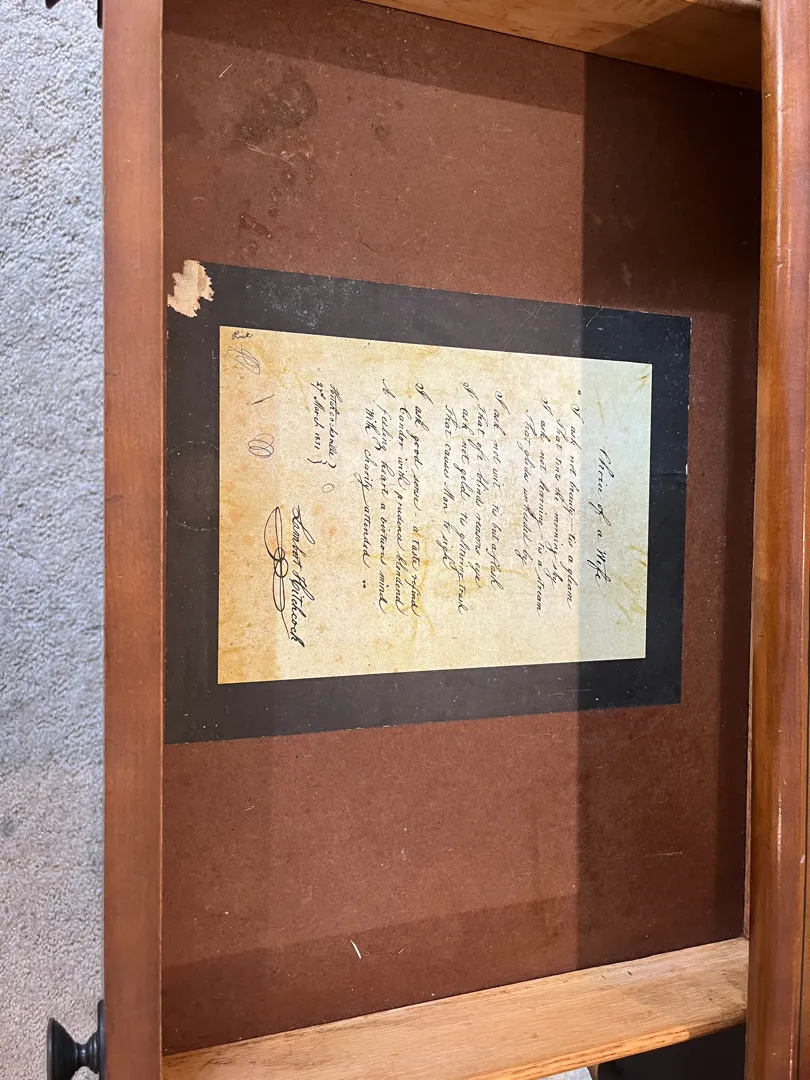 Choice of a Wife
"I ask not beauty tis a gleam
That tins the morning sky
I ask not learning tis a stream
That glides unheeded by
I ask not wit tis but a flash
That oft blinds reasons eye
I ask not gold tis glittering trash
That causes Man to sigh
I ask good sense a taste refind
Candor with prudence blended
A feeling heart a virtuous mind
With charity attended "
Hitchcocksville }
27th March 1831 }
Lambert Hitchcock
Rick